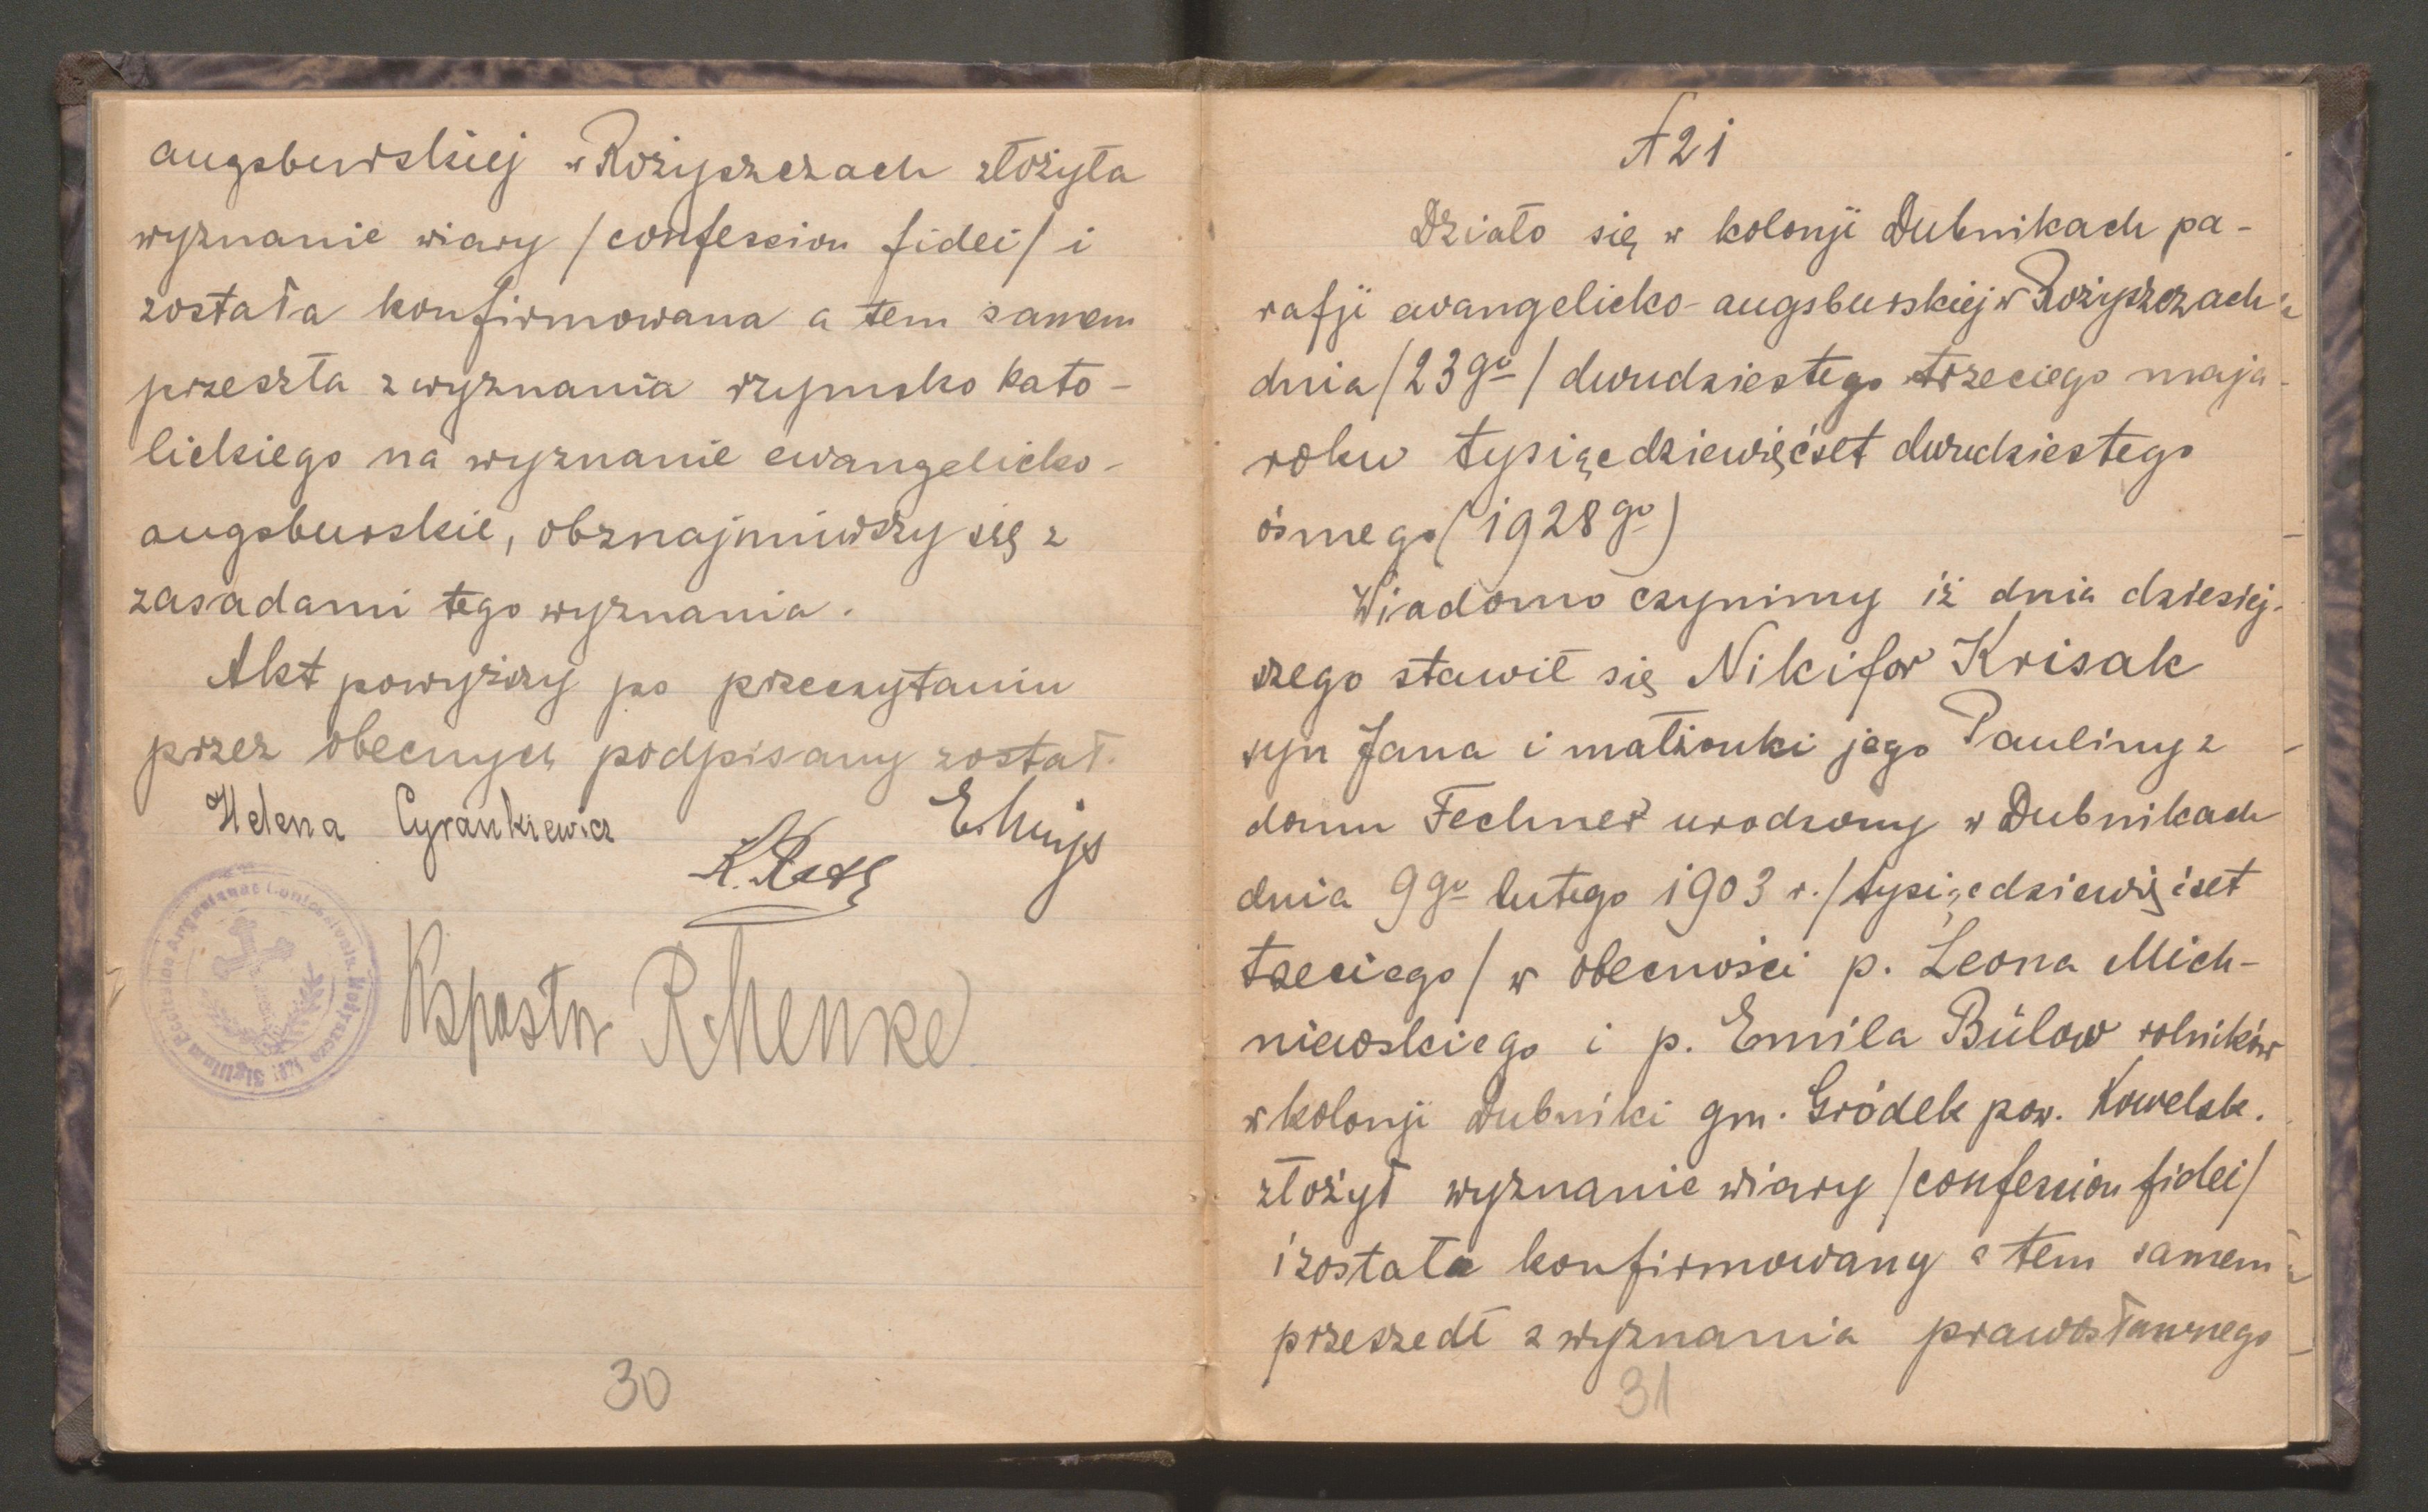 augsburskiej w Rożyszczach złożyła
wyznanie wiary /confession fidei/ i
została konfirmowana a tem samem
przeszła z wyznania rzymsko kato-
lickiego na wyznanie ewangelicko-
augsburskie, obznajmiwszy się z
zasadami tego wyznania.
Akt powyższy po przeczytaniu
przez obecnych podpisany został.
Helena Cyrankiewicz
Ks pastor RHenke
30
21
Działo się w kolonji Dubnikach pa-
rafji ewangelicko-augsburskiej w Rożyszczach
dnia /23go/ dwudziestego trzeciego maja
roku tysiącdziewięćset dwudziestego
ósmego (1928go)
Wiadomo czynimy iż dnia dziesiej-
szego stawił się Nikifor Krisak
syn Jana i małżonki jego Pauliny z
domu Fechner urodzony w Dubnikach
dnia 9go lutego 1903 r. /tysiącdziewięćset
trzeciego/ w obecności p. Leona Mich-
niewskiego i p. Emila Bülow rolników
w kolonji Dubniki gm. Gródek pow. Kowelsk.
złożył wyznanie wiary /confession fidei/
i została konfirmowany a tem samem
przeszedł z wyznania prawosławnego
31